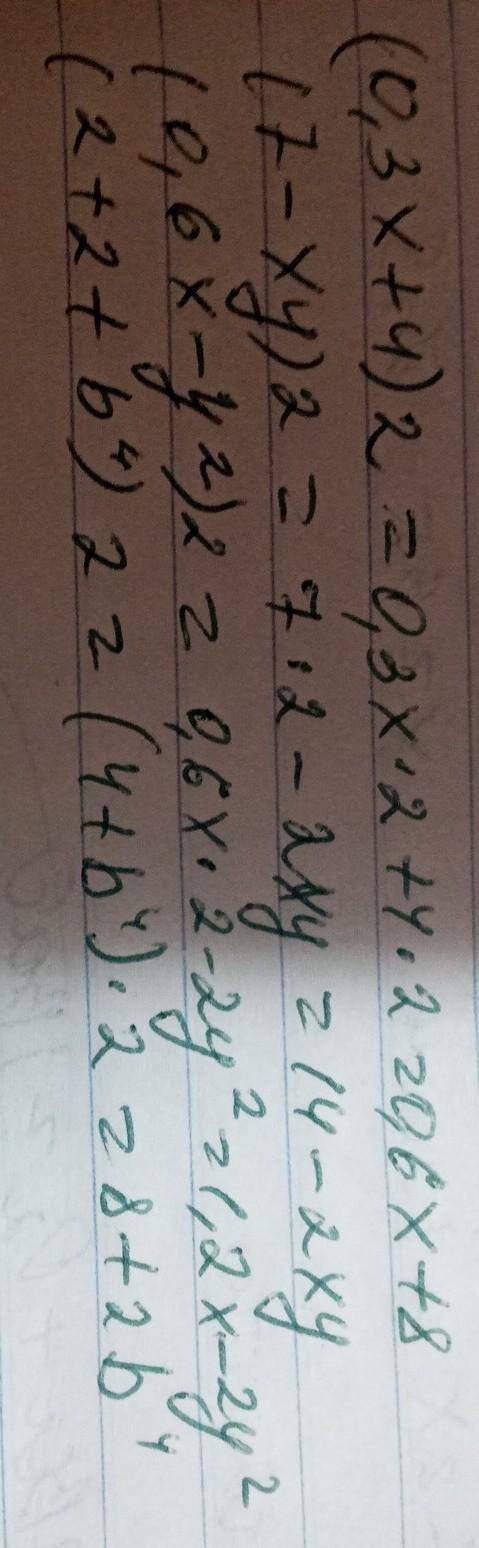 (0,3x+4)2=0,3x·2+4·2=0,6x+8
(7-xy)2=7·2-2xy=14-2xy
(0,6x-y²)2=0,6x·2-2y²=1,2x-2y²
(2+2+b⁴)2=(4+b⁴)·2=8+2b⁴